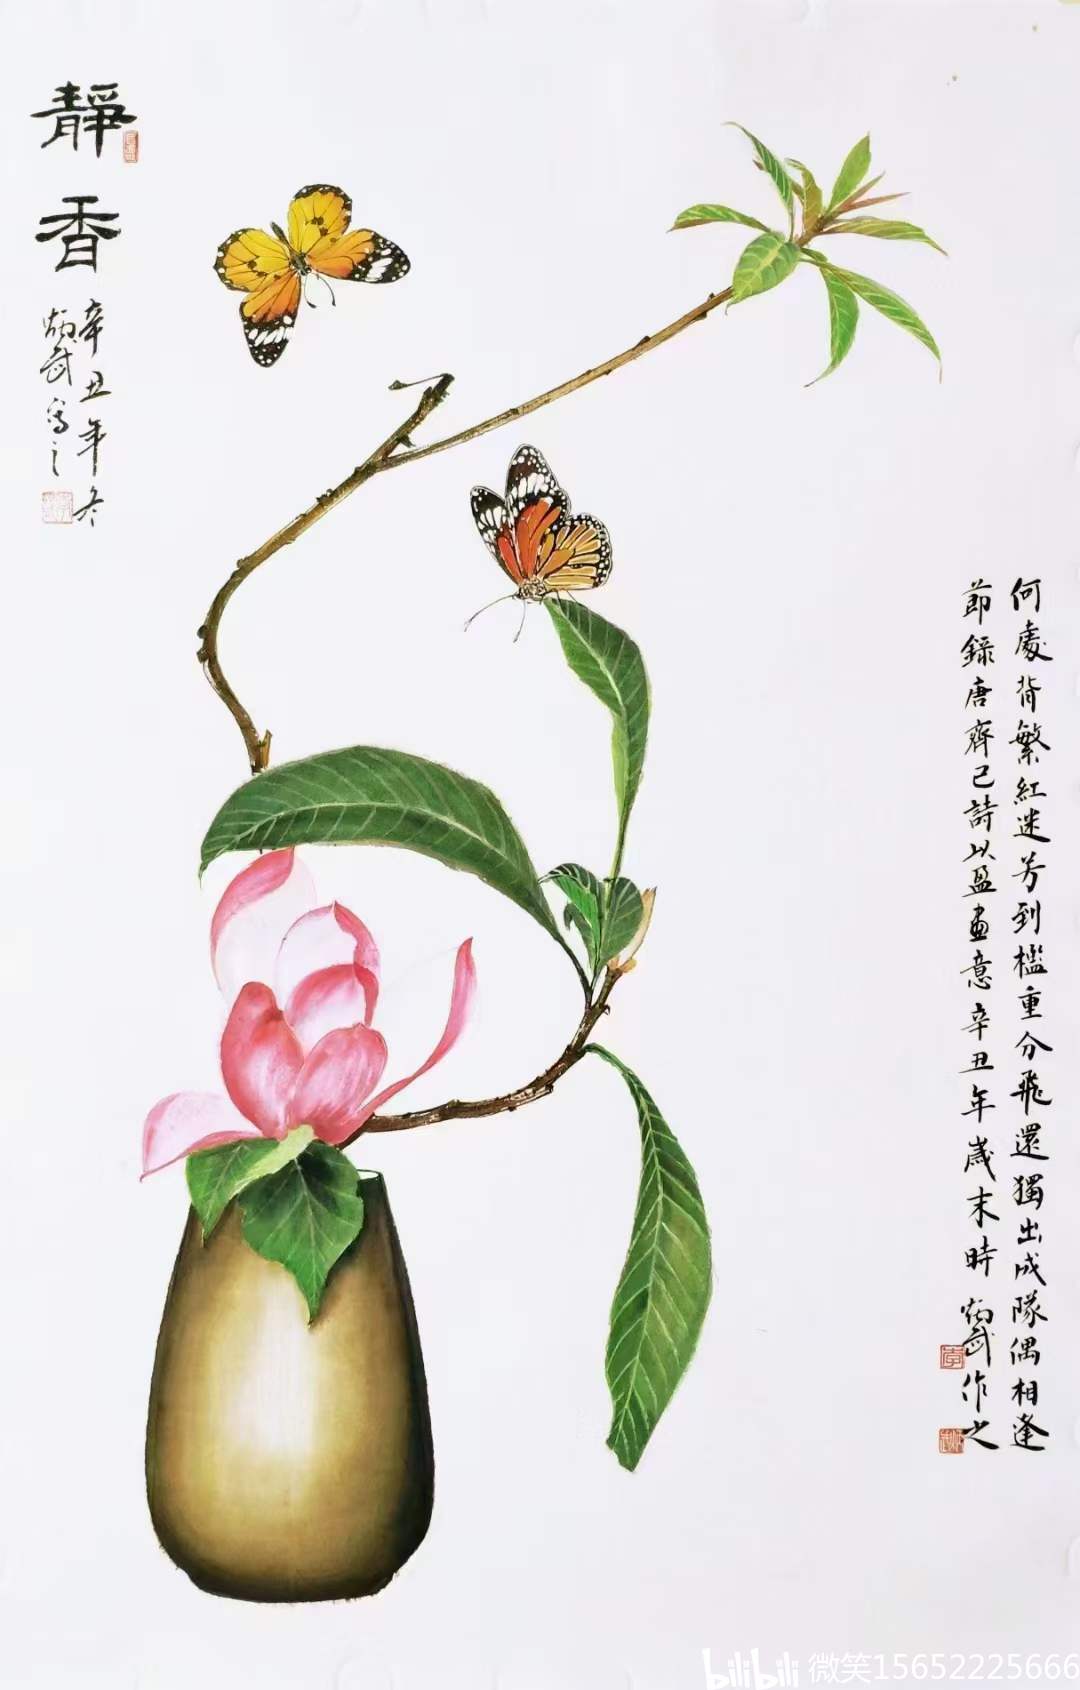 靜香
辛丑年冬
炳武寫之
何處背繁紅迷芳到檻重分飛還獨出成隊偶相逢
節錄唐齊己詩以盈畫意辛丑年歲末時炳武作之
bilibili 微笑15652225666